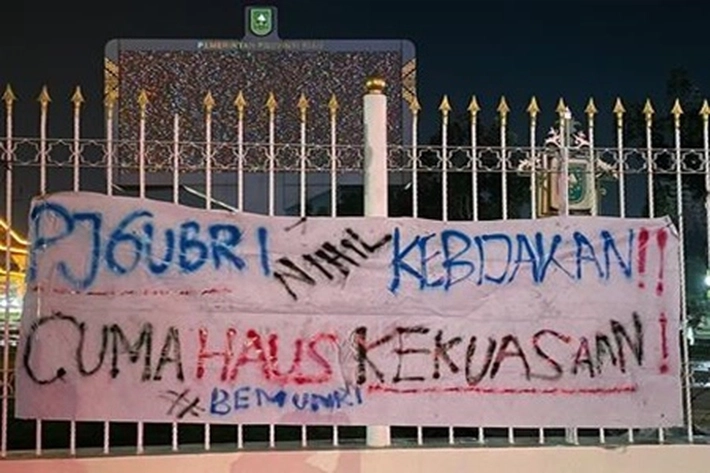 PEMERINTAH PROVINSI RIAU
PJ GUBRI NIHIL KEBIJAKAN!!
CUMA HAUS KEKUASAAN!
#BEMUNRI